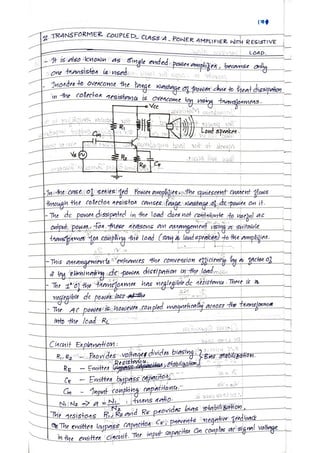 2] TRANSFORMER COUPLED CLASS-A POWER AMPLIFIER WITH RESISTIVE
LOAD.
- It is also known as single ended power amplifier, because only
one transistor is used.
- Inorder to overcome the large wastage of power due to heat dissipation
in the collector resistance is overcome by using transformers.
Vcc
R1
N1
N2
Loud speaker.
Cin
Vs
R2
RE
CE
- In the case of series fed Power amplifier, the quiescent current flows
through the collector resistor causes large wastage of dc power in it.
- The dc power dissipated in the load does not contribute to useful ac
output power. For these reasons an arrangement using a suitable
transformer for coupling the load (say a loudspeaker) to the amplifier.
- This arrangements enhances the conversion efficiency by a factor of
2 by eliminating dc power dissipation in the load.
- The 1° of the transformer has negligible dc resistance. There is a
negligible dc power loss
- The AC power is however coupled magnetically across the transformer
into the load RL
Circuit Explanation:
R1, R2 - Provides voltage divider biasing.
Bias stabilization.
RE - Emitter Resistance, stabilization
CE - Emitter bypass capacitor.
Cin - Input coupling capacitance.
N1:N2 → a = N1/N2, turns ratio.
The resistors R1, R2 and RE provides bias stabilization,
The emitter bypass capacitor CE, prevents negative feedback
in the emitter circuit. The input capacitor Cin couples ac signal voltage